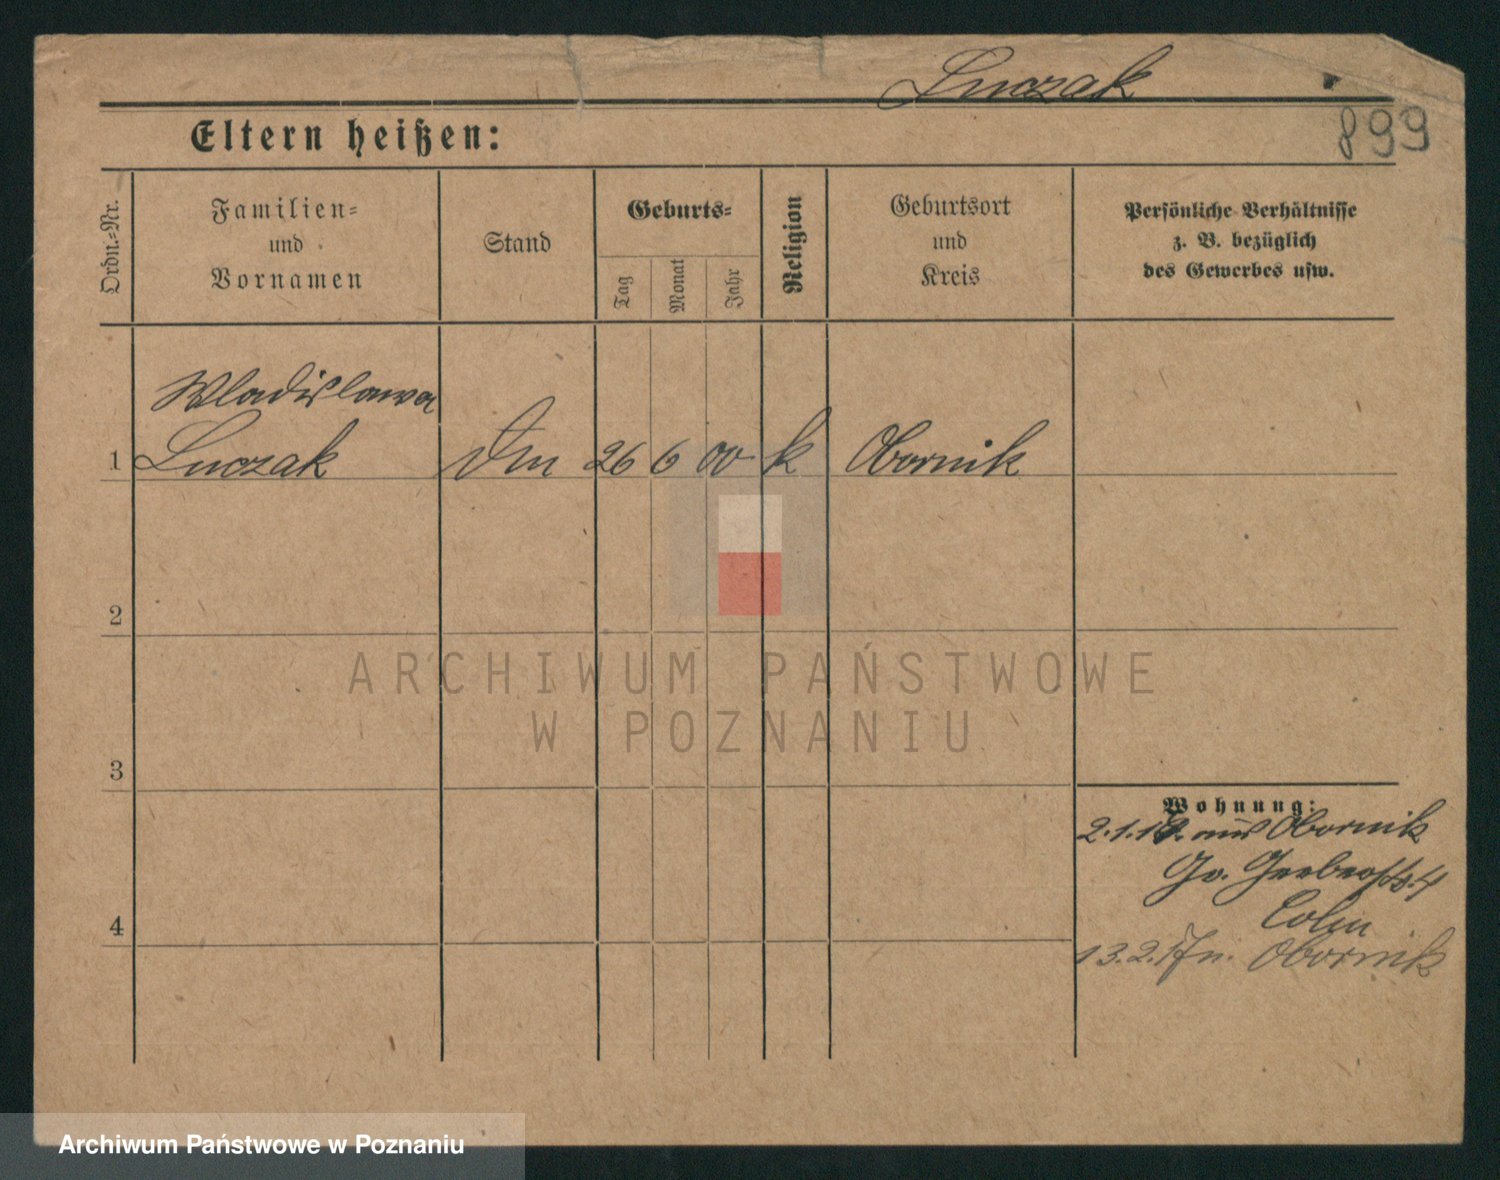 Luczak
899
Eltern heißen:
Ordn.-Nr.
Familien-
und
Vornamen
Stand
Geburts-
Tag
Monat
Jahr
Religion
Geburtsort
und
Kreis
Persönliche Verhältnisse
z. B. bezüglich
des Gewerbes usw.
Wladislawa
1 Luczak 26 6 00 k Obornik
2
ARCHIWUM PAŃSTWOWE
W POZNANIU
3
Wohnung:
2.1. aus Obornik
Gr. Gerberstr. 4
4
13.2.17 n. Obornik
Archiwum Państwowe w Poznaniu